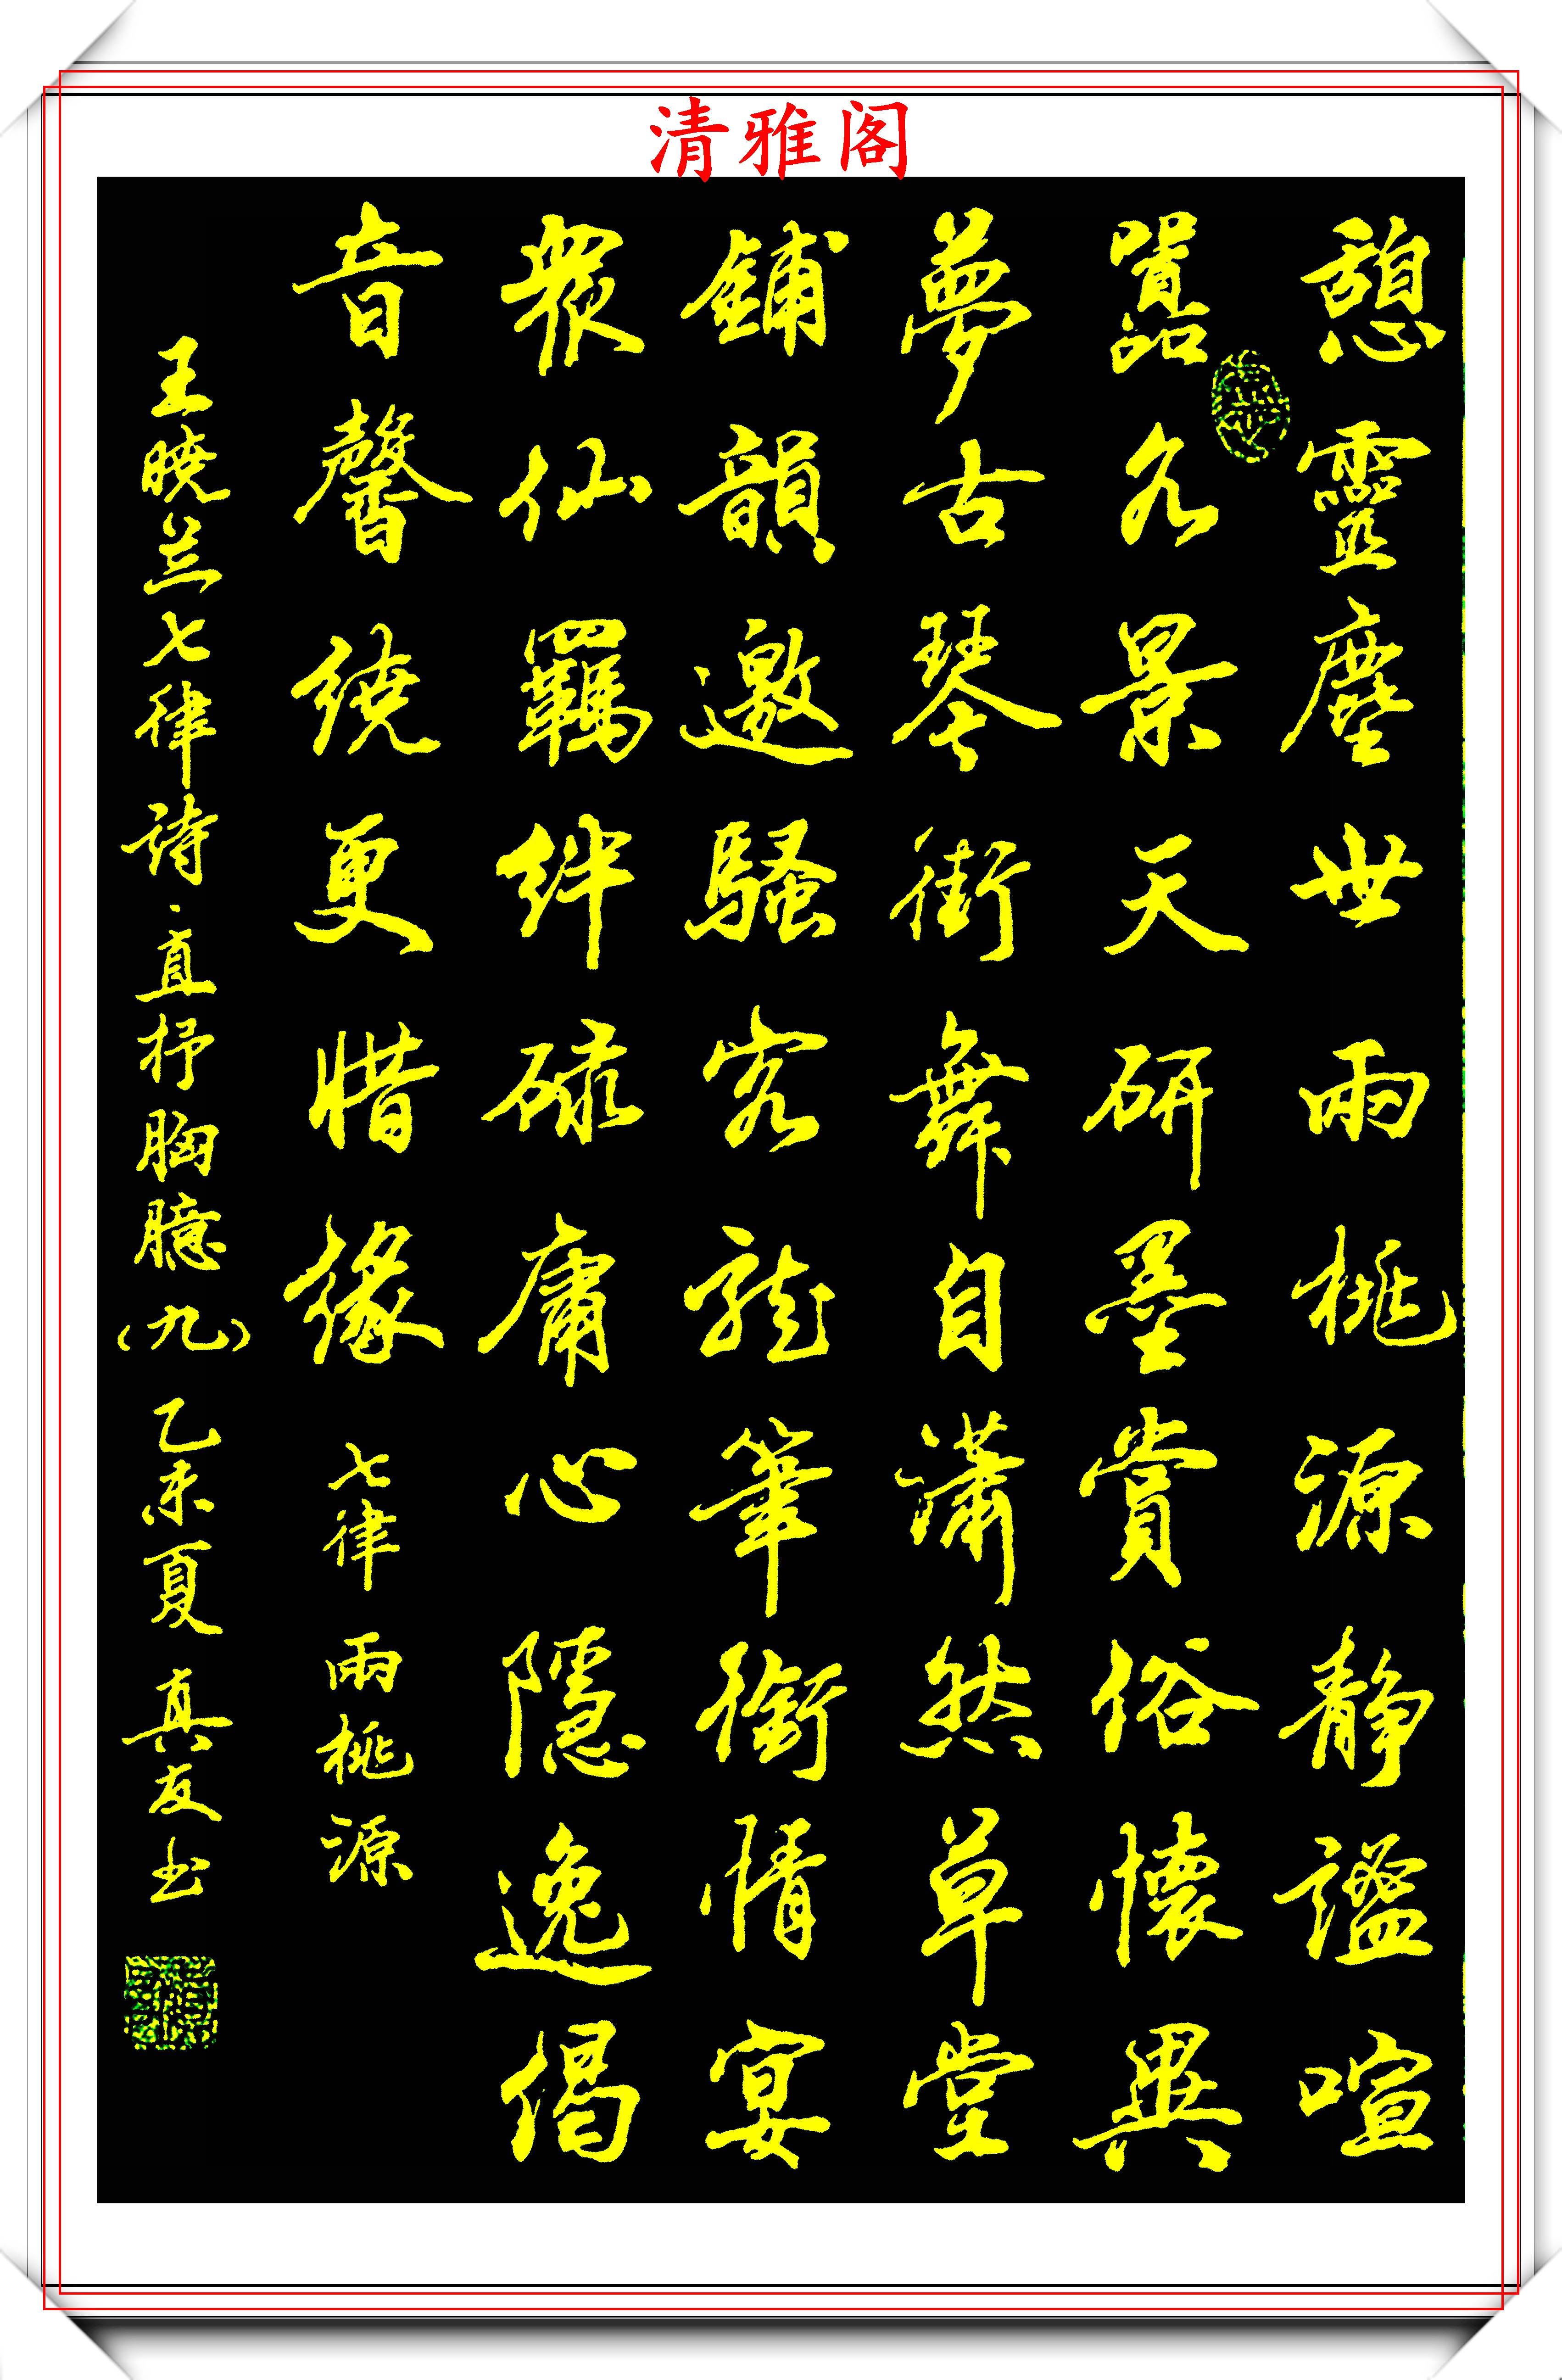 清雅阁
憩靈塵世雨桃源靜謐喧
囂各景天研墨賞俗懷異
夢古琴街舞自瀟然草堂
鋪韻邀騷客龍筆銜情宴
眾仙羈絆碌庸心隱逸偈
音馨繞更惜緣 七律 雨桃源
王晓兰七律詩·直抒胸臆（九） 乙未夏 真友书